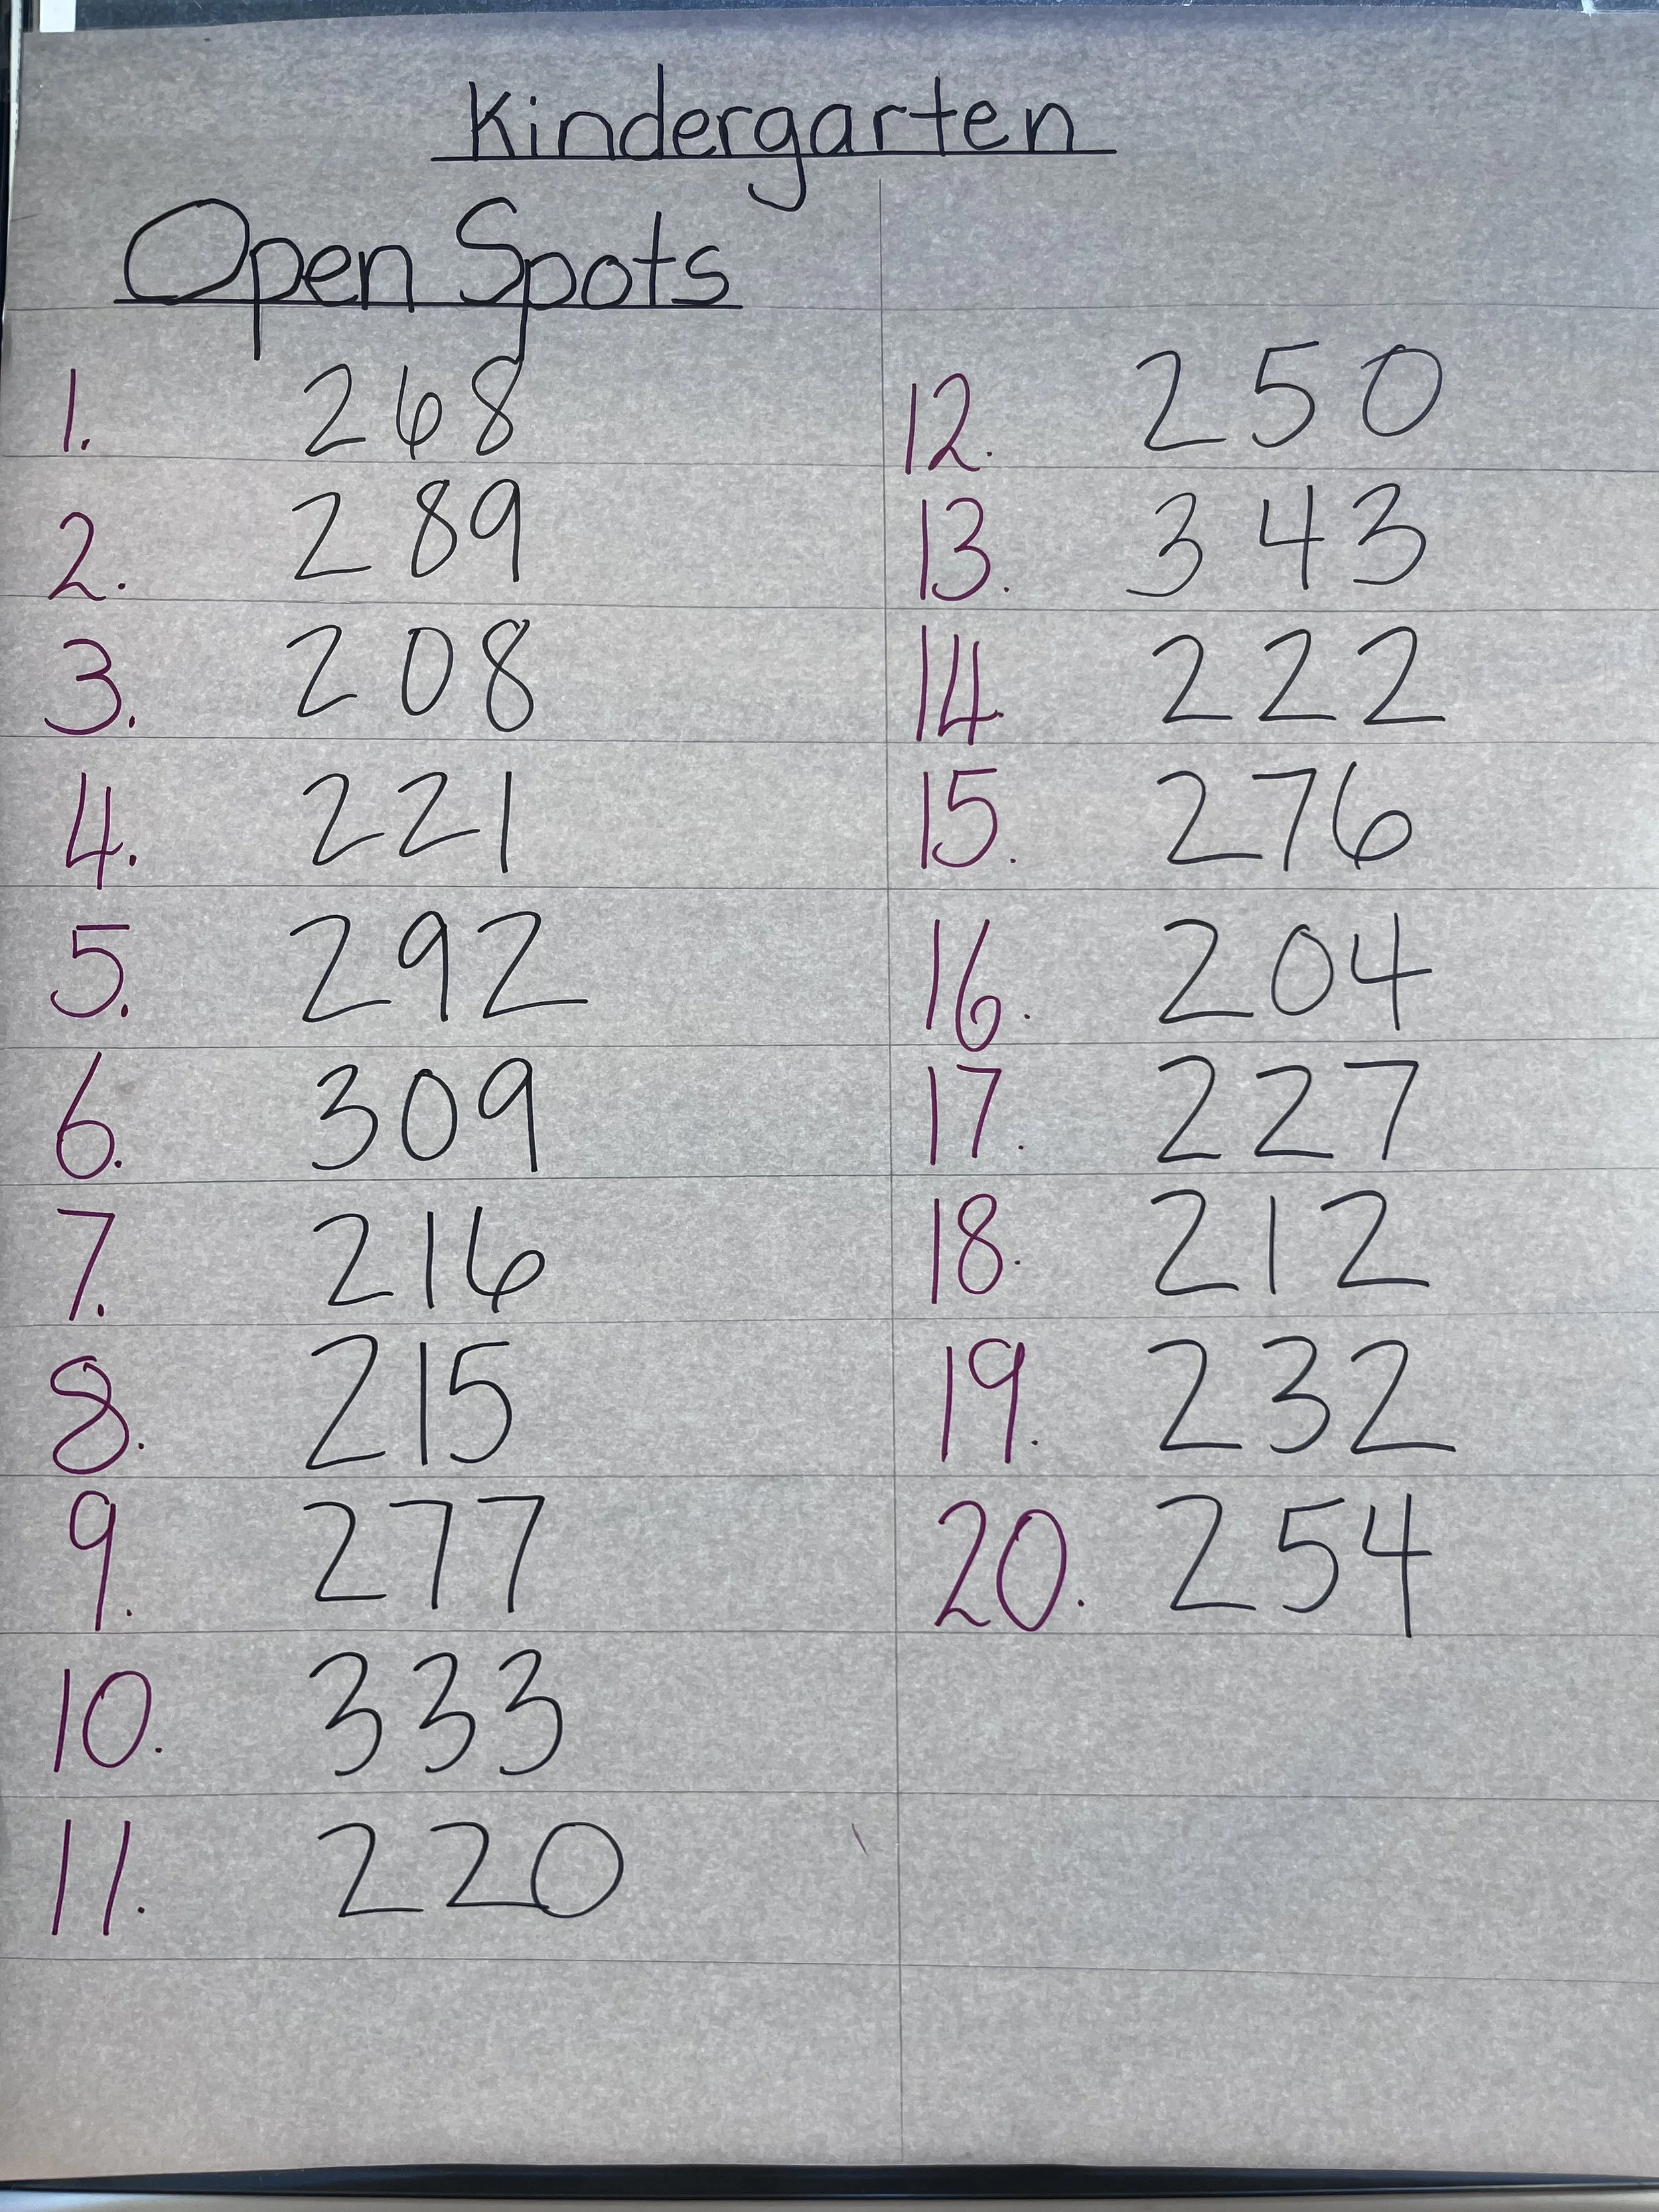 Kindergarten
Open Spots
1. 268
2. 289
3. 208
4. 221
5. 292
6. 309
7. 216
8. 215
9. 277
10. 333
11. 220
12. 250
13. 343
14. 222
15. 276
16. 204
17. 227
18. 212
19. 232
20. 254